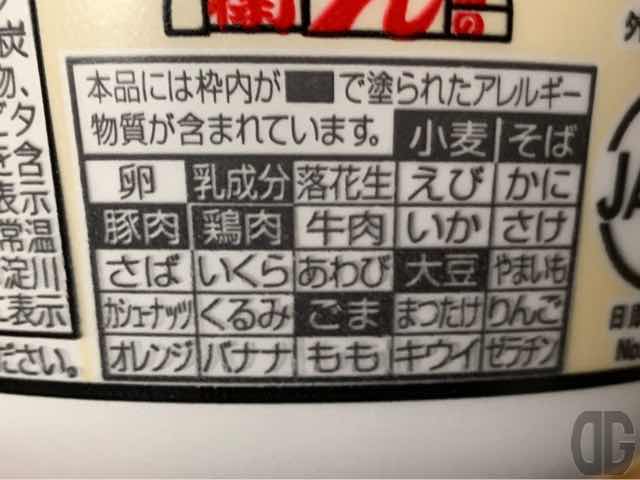 本品には枠内が■で塗られたアレルギー
物質が含まれています。 小麦 そば
卵 乳成分 落花生 えび かに
豚肉 鶏肉 牛肉 いか さけ
さば いくら あわび 大豆 やまいも
カシューナッツ くるみ ごま まつたけ りんご
オレンジ バナナ もも キウイ ゼラチン
炭
物、
タ
を含
表示
常温
淀川
に表示
ださい。
外
JA
No
DG